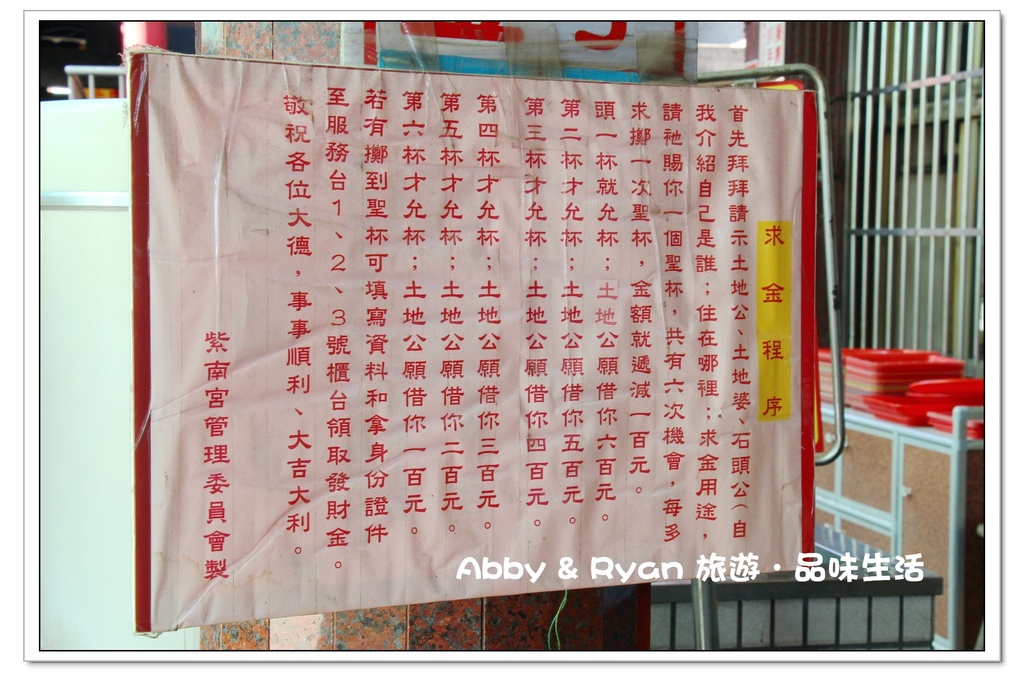 求金程序
首先拜拜請示土地公、土地婆、石頭公（自
我介紹自己是誰；住在哪裡；求金用途，
請祂賜你一個聖杯，共有六次機會，每多
求擲一次聖杯，金額就遞減一百元。
頭一杯就允杯；土地公願借你六百元。
第二杯才允杯；土地公願借你五百元。
第三杯才允杯；土地公願借你四百元。
第四杯才允杯；土地公願借你三百元。
第五杯才允杯；土地公願借你二百元。
第六杯才允杯；土地公願借你一百元。
若有擲到聖杯可填寫資料和拿身份證件
至服務台1、2、3號櫃台領取發財金。
敬祝各位大德，事事順利、大吉大利。
紫南宮管理委員會製
Abby & Ryan 旅遊・品味生活